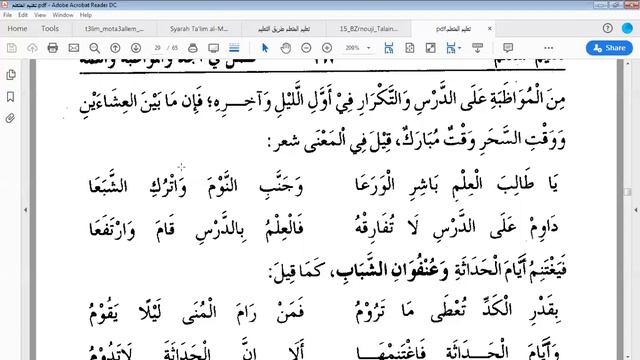 تعليم المتعلم.pdf - Adobe Acrobat Reader DC
t3lim_mota3allem_... Syarah Ta'lim al-M... تعليم المتعلم طريق التعليم 15_BZ/nouji_Talain... تعليم المتعلم.pdf
29 / 65 125%
مِنَ الْمُوَاظَبَةِ عَلَى الدَّرْسِ وَالتَّكْرَارِ فِيْ أَوَّلِ اللَّيْلِ وَآخِـرِهِ؛ فَإِن مَا بَيْنَ الْعِشَاءَيْنِ
وَوَقْتِ السَّحَرِ وَقْتٌ مُبَارَكٌ، قِيْلَ فِي الْمَعْنَى شعر:
يَا طَالِبَ الْعِلْمِ بَاشِرِ الْوَرَعَا وَجَنِّبِ النَّوْمَ وَاتْرُكِ الشَّبَعَا
دَاوِمْ عَلَى الدَّرْسِ لَا تُفَارِقْهُ فَالْعِلْمُ بِالدَّرْسِ قَامَ وَارْتَفَعَا
فَيَغْتَنِمُ أَيَّامَ الْحَدَاثَةِ وَعُنْفُوَانِ الشَّبَابِ، كَمَا قِيلَ:
بِقَدْرِ الْكَدِّ تُعْطَى مَا تَرُوْمُ فَمَنْ رَامَ الْمُنَى لَيْلًا يَقُوْمُ
وَأَيَّامَ الْحَـدَاثَةِ فَاغْتَنِمْهَا أَلَا إِنَّ الْحَدَاثَةَ لَاتَدُوْمُ